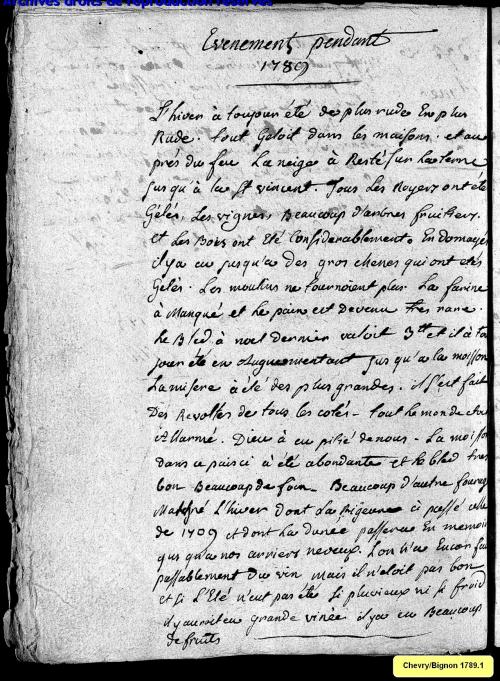 Archives droits de reproduction réservés
Evenement pendant
1789
L'hiver à toujour été de plus rude En plus
Rude. tout Geloit dans les maisons. et au
prés du feu La neige à Resté sur La terre
jusqu'à la St vincent. Tous Les Noyers ont été
Gélés, Les vignes, Beaucoup d'arbres fruitiers.
et Les Bois ont Eté Considerablement. En domagés
il y a eu jusqu'a des gros chenes qui ont etés
Gelés. Les moulins ne tournoient plus. La farine
à Manqué et Le pain est devenu tres rare.
Le Bled à noel dernier valoit 3tt et il à tou
jour été en Augmentant jusqu'a la moisson
La misere à été des plus grandes. il s'est fait
Des Revoltes de tous les cotés - tout le monde
Allarmé. Dieu à eu pitié de nous - La moisson
dans ce pais ci à été abondante et le bled tres
bon Beaucoup de foin - Beaucoup d'autre
Malgré L'hiver dont La Rigeur à passé celle
de 1709 et dont La durée passera En memoire
qus qu'a nos arriers neveux. L'on n'a Encor fait
passablement du vin mais il n'etoit pas bon
et si L'Eté n'eut pas été si pluvieux ni si froid
il y auroit eu grande vinée il y a eu Beaucoup
de fruits
Chevry/Bignon 1789.1